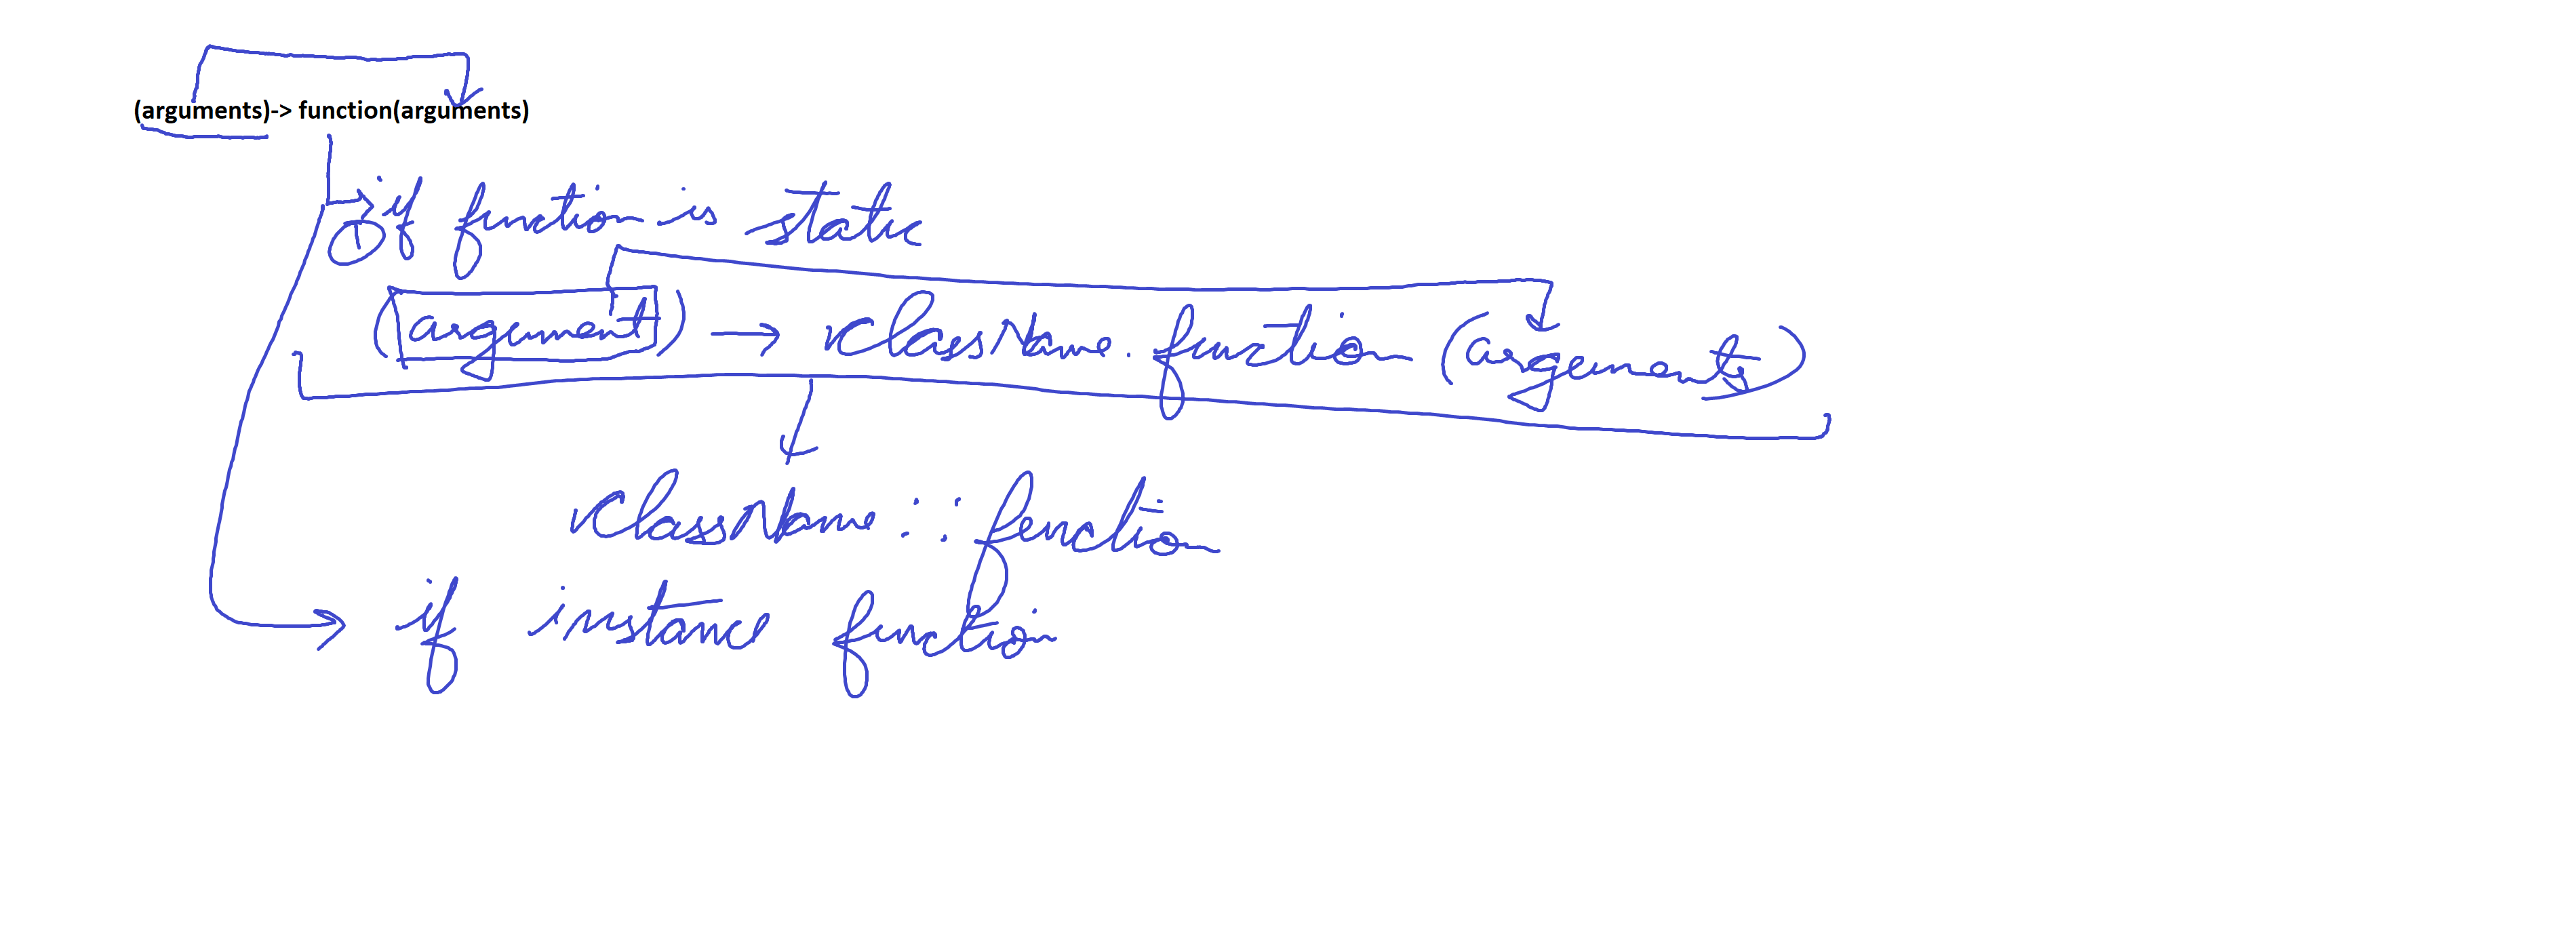 (arguments)-> function(arguments)
① if function is static
(argument) → ClassName.function (arguments)
ClassName :: function
if instance function